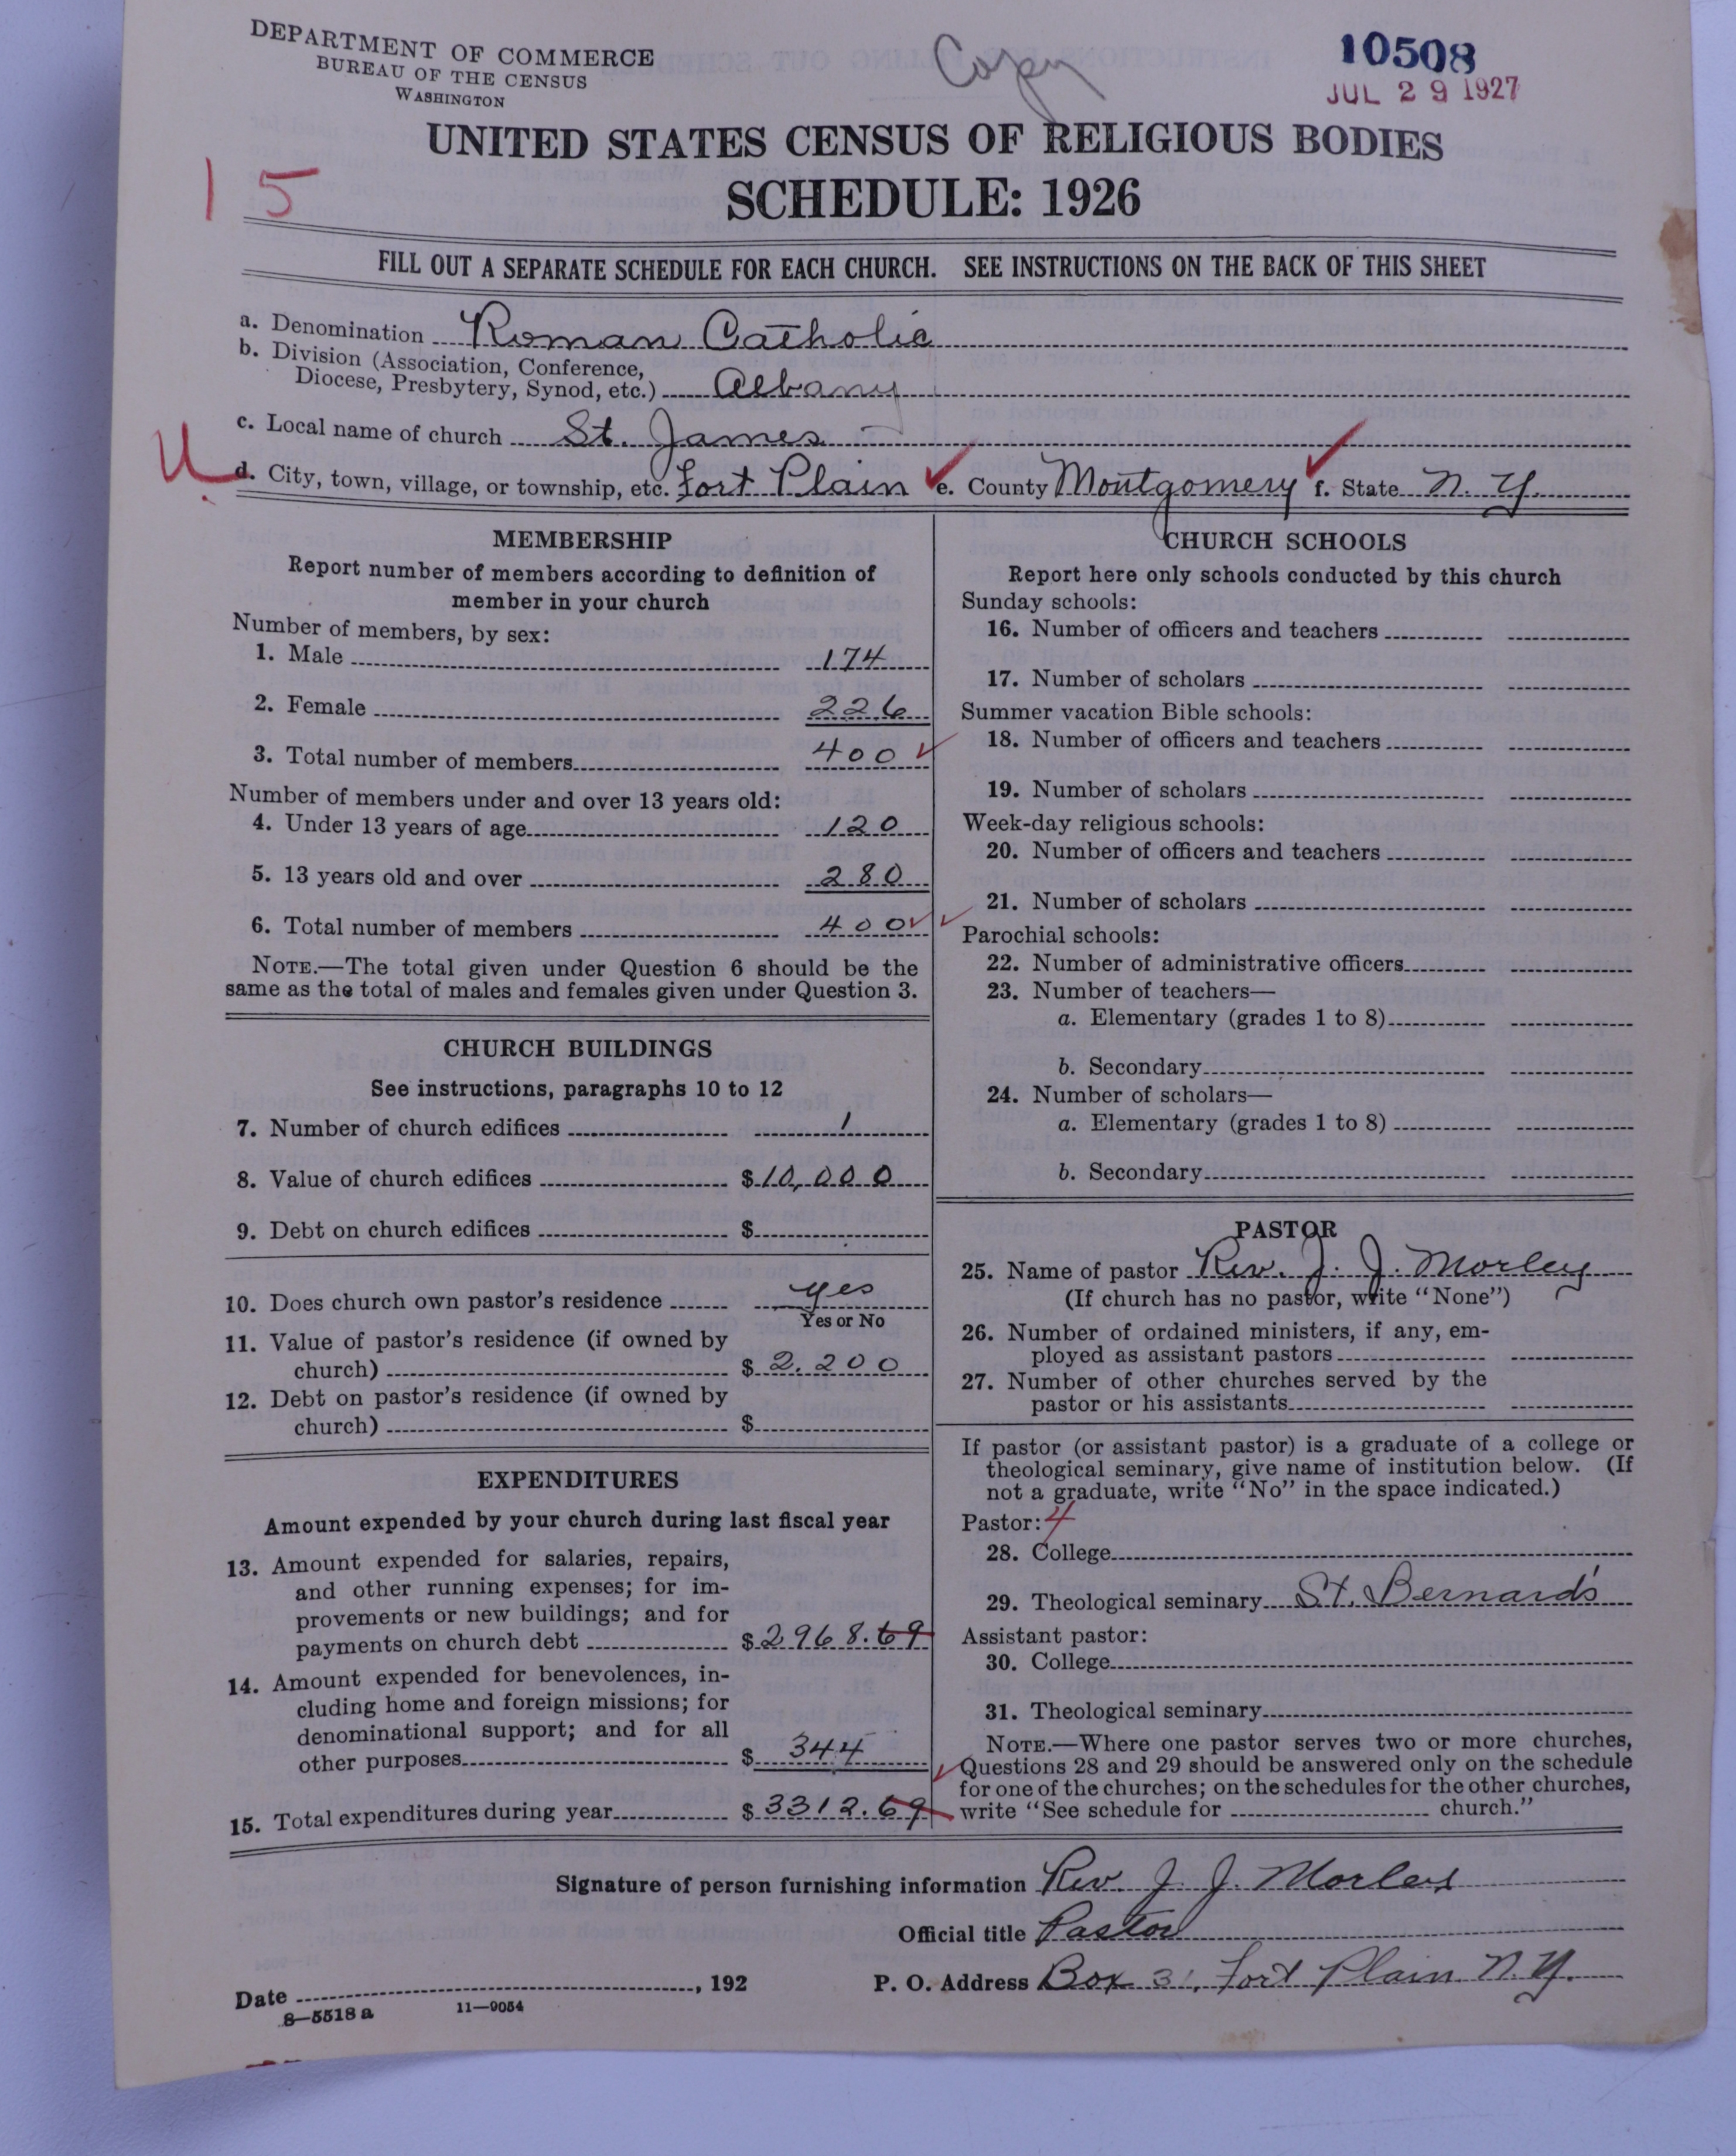 DEPARTMENT OF COMMERCE
BUREAU OF THE CENSUS
WASHINGTON
Copy
10508
JUL 29 1927
UNITED STATES CENSUS OF RELIGIOUS BODIES
SCHEDULE: 1926
15
FILL OUT A SEPARATE SCHEDULE FOR EACH CHURCH. SEE INSTRUCTIONS ON THE BACK OF THIS SHEET
a. Denomination Roman Catholic
b. Division (Association, Conference,
Diocese, Presbytery, Synod, etc.) Albany
c. Local name of church St. James
U
d. City, town, village, or township, etc. Fort Plain e. County Montgomery f. State N. Y.
MEMBERSHIP
Report number of members according to definition of
member in your church
Number of members, by sex:
1. Male 174
2. Female 226
3. Total number of members 400
Number of members under and over 13 years old:
4. Under 13 years of age 120
5. 13 years old and over 280
6. Total number of members 400
NOTE.—The total given under Question 6 should be the
same as the total of males and females given under Question 3.
CHURCH BUILDINGS
See instructions, paragraphs 10 to 12
7. Number of church edifices 1
8. Value of church edifices $ 10,000
9. Debt on church edifices $
10. Does church own pastor's residence yes
Yes or No
11. Value of pastor's residence (if owned by
church) $ 2.200
12. Debt on pastor's residence (if owned by
church) $
EXPENDITURES
Amount expended by your church during last fiscal year
13. Amount expended for salaries, repairs,
and other running expenses; for im-
provements or new buildings; and for
payments on church debt $ 2968.69
14. Amount expended for benevolences, in-
cluding home and foreign missions; for
denominational support; and for all
other purposes $ 344
15. Total expenditures during year $ 3312.69
CHURCH SCHOOLS
Report here only schools conducted by this church
Sunday schools:
16. Number of officers and teachers
17. Number of scholars
Summer vacation Bible schools:
18. Number of officers and teachers
19. Number of scholars
Week-day religious schools:
20. Number of officers and teachers
21. Number of scholars
Parochial schools:
22. Number of administrative officers
23. Number of teachers—
a. Elementary (grades 1 to 8)
b. Secondary
24. Number of scholars—
a. Elementary (grades 1 to 8)
b. Secondary
PASTOR
25. Name of pastor Rev. J. J. Morley
(If church has no pastor, write "None")
26. Number of ordained ministers, if any, em-
ployed as assistant pastors
27. Number of other churches served by the
pastor or his assistants
If pastor (or assistant pastor) is a graduate of a college or
theological seminary, give name of institution below. (If
not a graduate, write "No" in the space indicated.)
Pastor: 4
28. College
29. Theological seminary St. Bernard's
Assistant pastor:
30. College
31. Theological seminary
NOTE.—Where one pastor serves two or more churches,
Questions 28 and 29 should be answered only on the schedule
for one of the churches; on the schedules for the other churches,
write "See schedule for church."
Signature of person furnishing information Rev. J. J. Morley
Official title Pastor
Date , 192 P. O. Address Box Fort Plain N. Y.
8—5518 a 11—9054